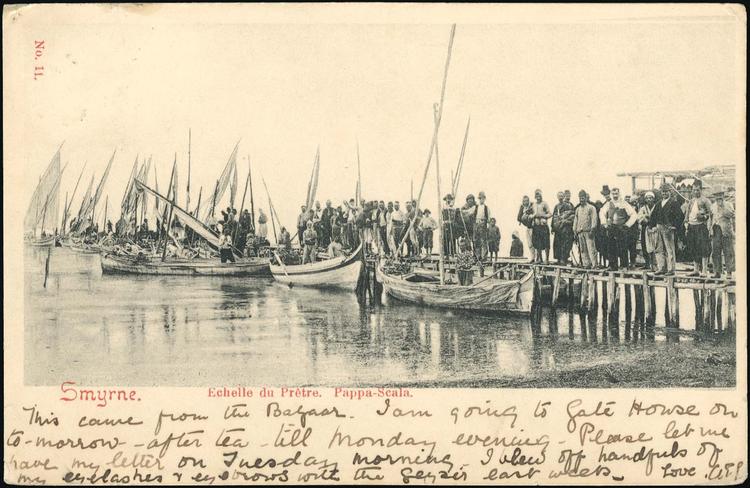 No. 11.
Smyrne.
Echelle du Prêtre. Pappa-Scala.
This came from the Bazaar. I am going to Gate House on
to-morrow - after tea - till Monday evening - Please let me
have my letter on Tuesday morning. I blew off handfuls of
my eyelashes & eyebrows with the Geyser last week. Love.